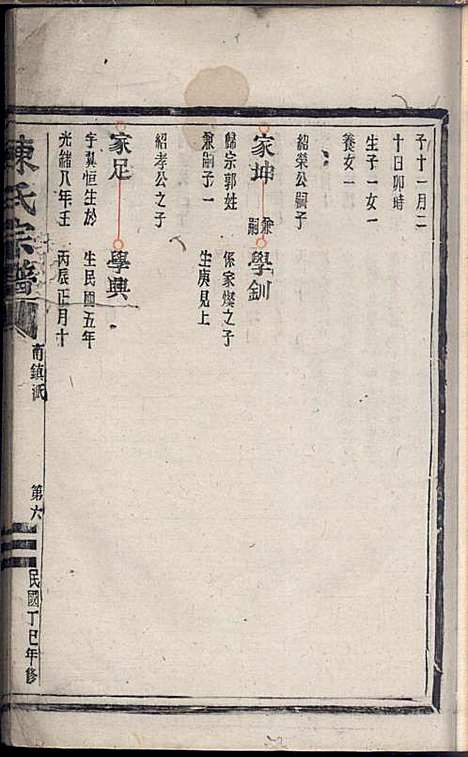 子十一月二
十日卯時
生子一女一
養女一
紹榮公嗣子
家坤 兼嗣 學釗
歸宗郭姓 係家燦之子
兼嗣子一 生庚見上
紹孝公之子
家足 學典
字冀恒生於 生民國五年
光緒八年壬 丙辰正月十
陳氏宗譜
南鎮派
第六
民國丁巳年修